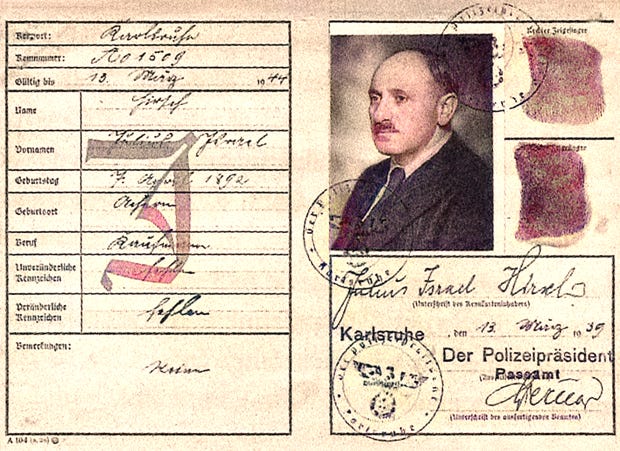 Kennort: Karlsruhe
Kennummer: A01509
Gültig bis 13. März 1944
Name Hirsch
Vornamen Julius Israel
Geburtstag 7. April 1892
Geburtsort Achern
Beruf Kaufmann
Unveränderliche Kennzeichen fehlen
Veränderliche Kennzeichen fehlen
Bemerkungen: Keine
J
A 104
Rechter Zeigefinger
Zeigefinger
Julius Israel Hirsch
(Unterschrift des Kennkarteninhabers)
Karlsruhe, den 13. März 1939
Der Polizeipräsident
Passamt
(Unterschrift des ausfertigenden Beamten)
Der Polizeipräsident
Karlsruhe